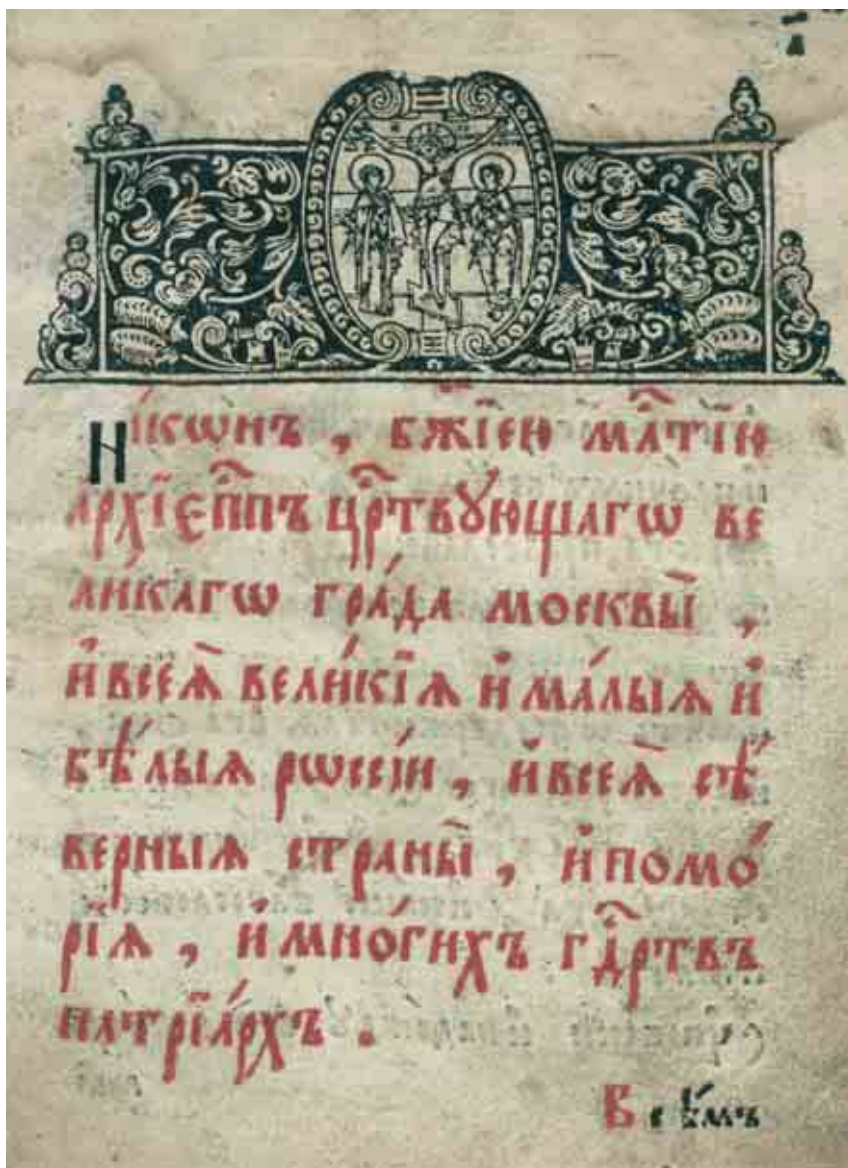 Нїкѡнъ, бж҃їею мл҃тїю
а҆рхїєп҃пъ цр҃твꙋющагѡ ве
ли́кагѡ гра́да москвы̀,
и҆ всеѧ̀ вели́кїѧ и҆ ма́лыѧ и҆
бѣ́лыѧ рѡссі́и, и҆ всеѧ̀ сѣ́
верныѧ страны̀, и҆ помо́
рїѧ, и҆ мно́гихъ гд҇ртвъ
патрїа́рхъ.
Всѣ́мъ